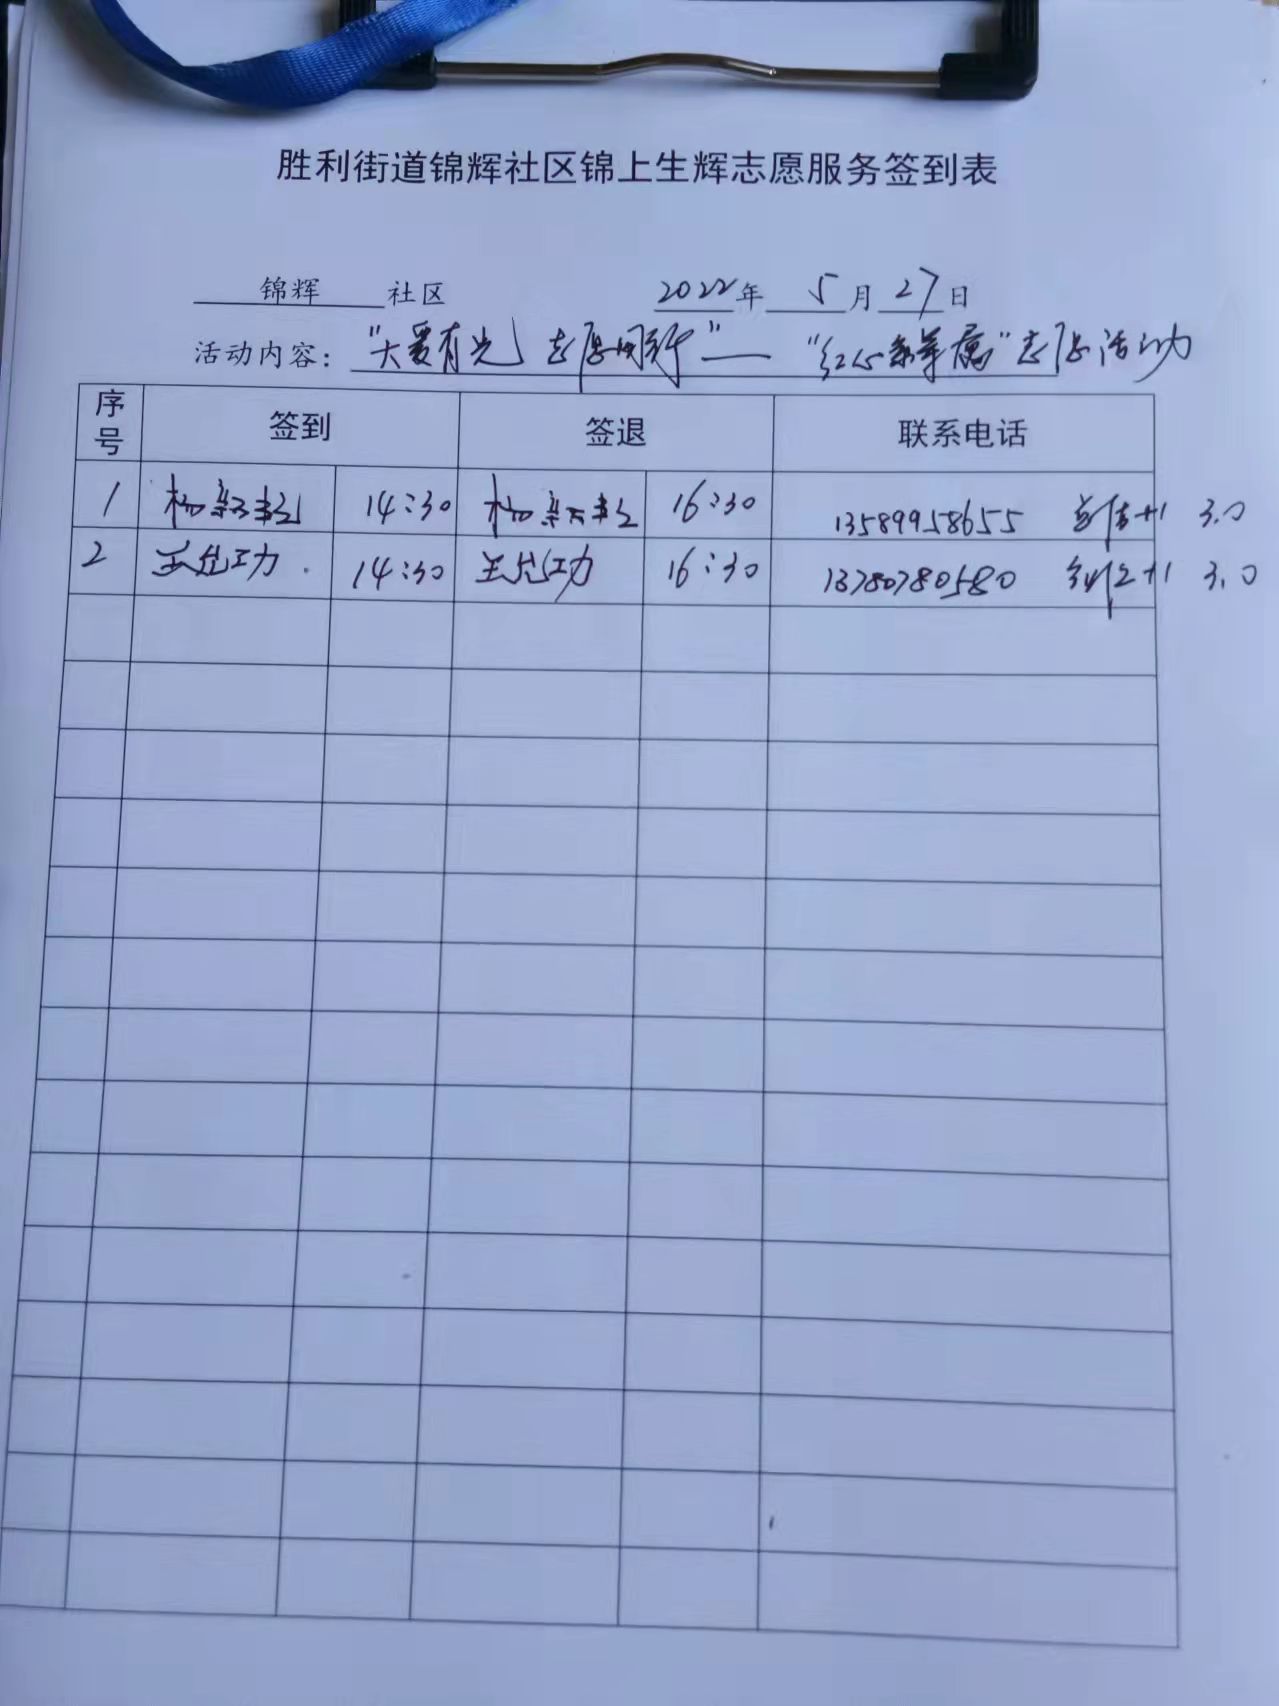 胜利街道锦辉社区锦上生辉志愿服务签到表
锦辉 社区 2022年 5月27日
活动内容："大爱有光 志愿同行"——"红心系军属"志愿活动
序号 签到 签退 联系电话
1 14:30 16:30 13589958655 +1 3.0
2 14:30 16:30 13780780580 +1 3.0